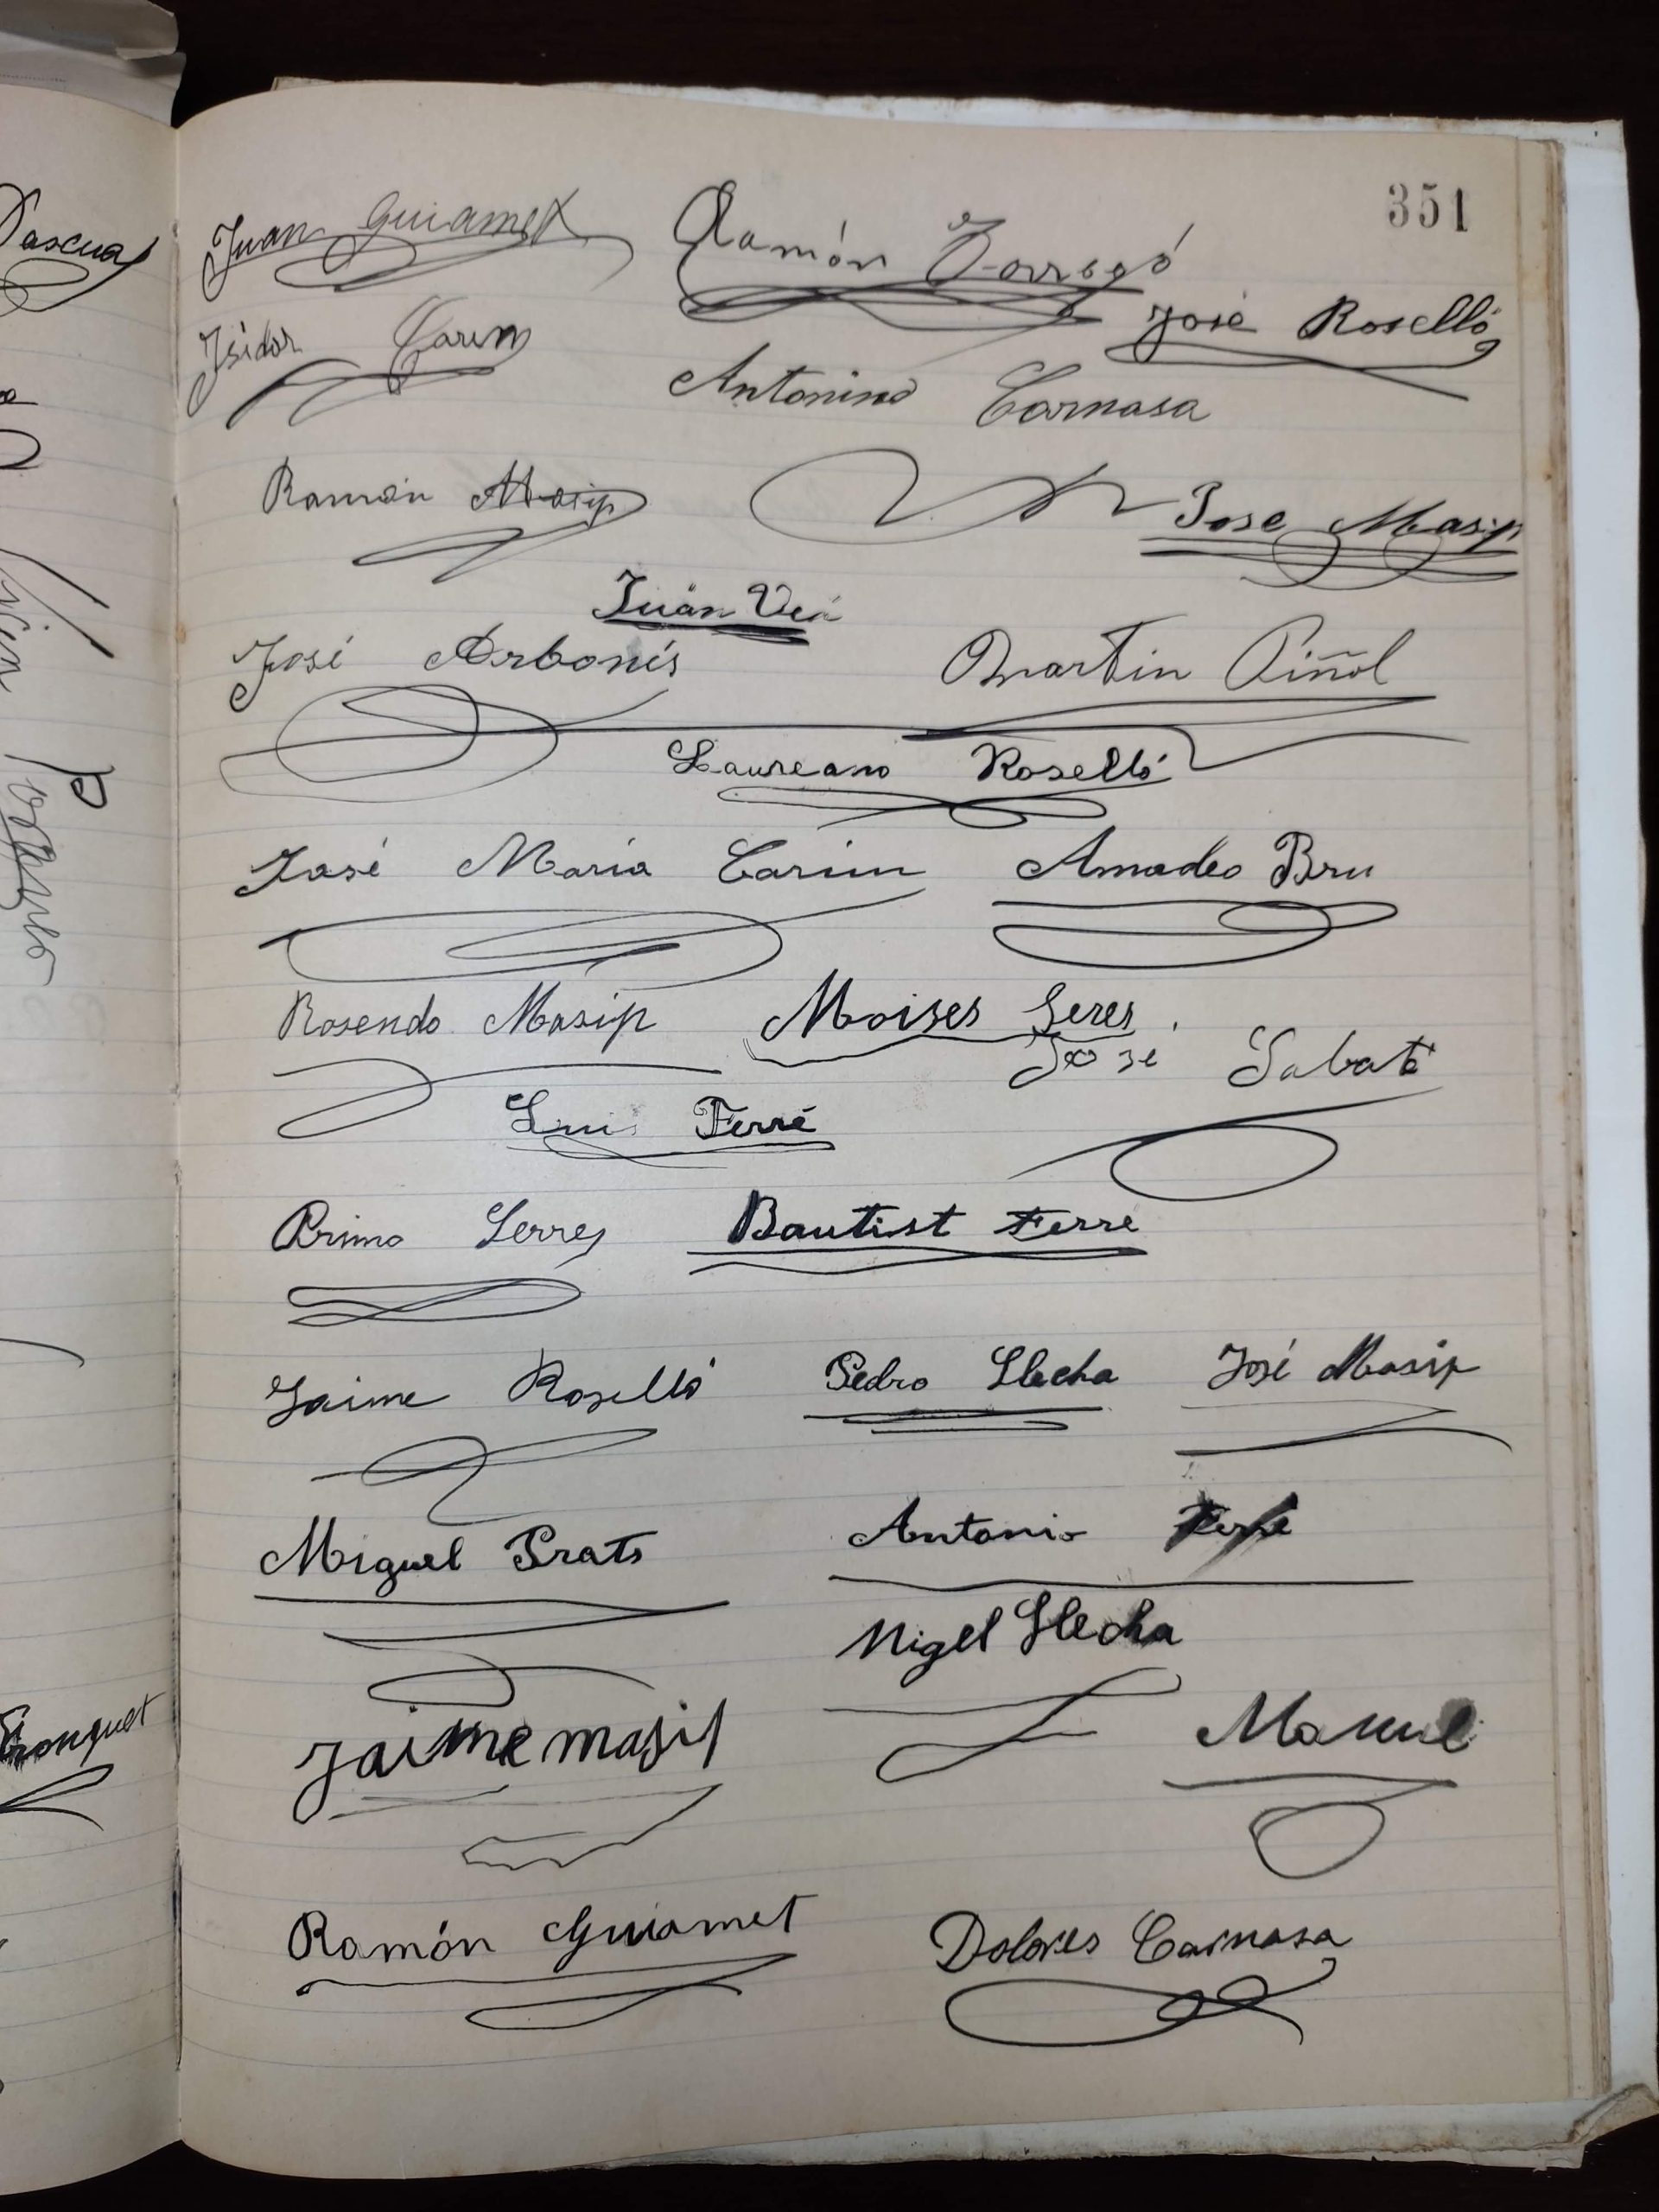 351
Pascual
Juan Guiamet
Ramón Torregó
José Roselló
Isidor Carim
Antonino Carnasa
Ramón Masip
Jose Masip
Juan Veá
José Arbonés
Martin Piñol
Laureano Roselló
José Maria Carim
Amadeo Bru
Rosendo Masip
Moises Seres
José Sabaté
Luis Ferré
Primo Serres
Bautist Ferre
Jaime Roselló
Pedro Llecha
José Masip
Miguel Prats
Antonio Ferré
Migel Llecha
Jaime masip
Manuel
Ramón Guiamet
Dolores Carnasa